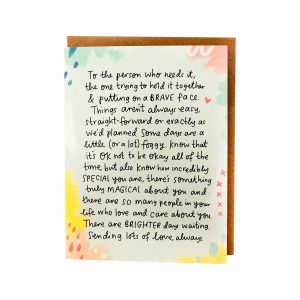 To the person who needs it,
the one trying to hold it together
& putting on a BRAVE face.
Things aren't always easy,
straight-forward or exactly as
we'd planned. Some days are a
little (or a lot) foggy. Know that
it's OK not to be okay all of the
time, but also know how incredibly
SPECIAL you are, there's something
truly MAGICAL about you and
there are so many people in your
life who love and care about you.
There are BRIGHTER days waiting.
Sending lots of love, always.